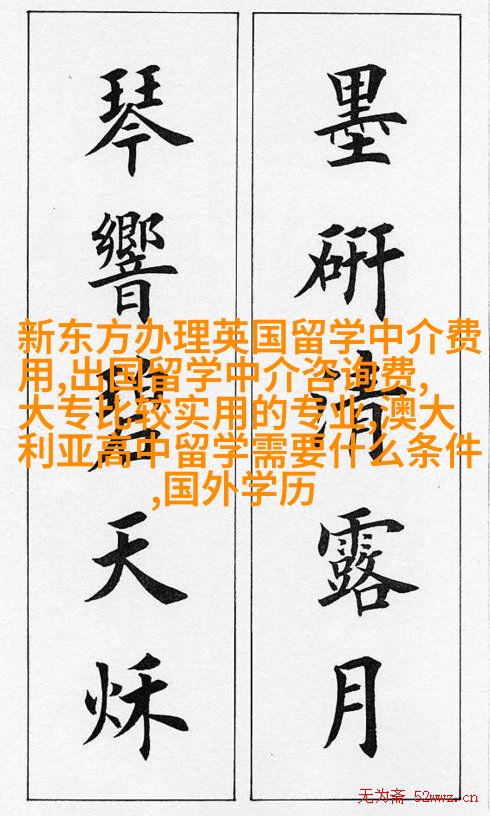 墨硏清露月
琴響碧天秌
新东方办理英国留学中介费
用,出国留学中介咨询费,
大专比较实用的专业,澳大
利亚高中留学需要什么条件
,国外学历
无为斋 52wwz.cn